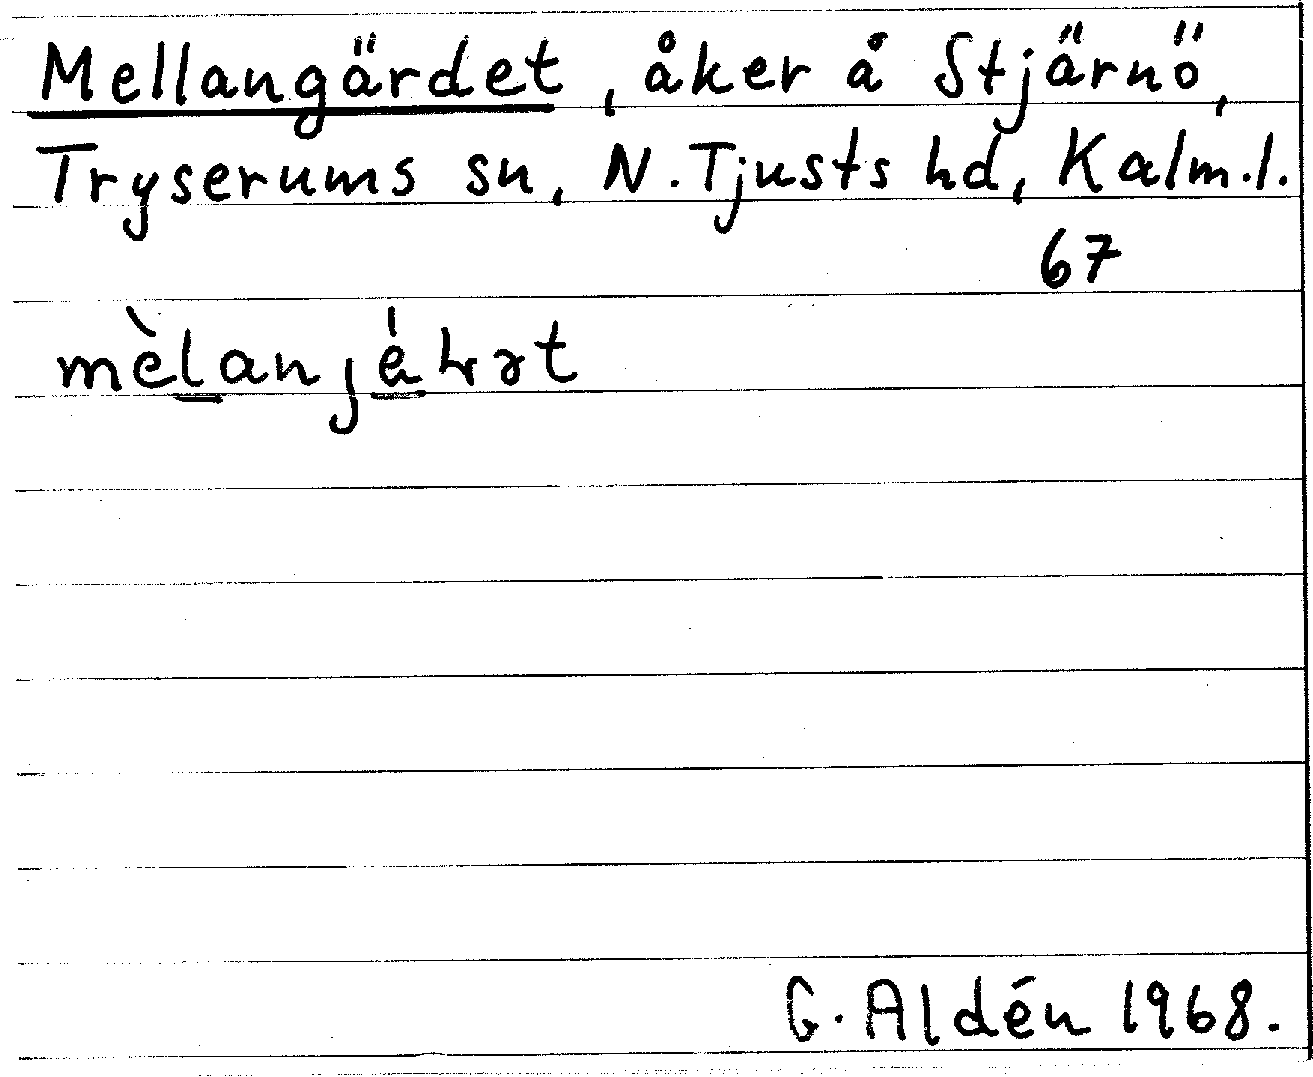 Mellangärdet, åker å Stjärnö,
Tryserums sn, N. Tjusts hd, Kalm.l.
67
G. Aldén 1968.